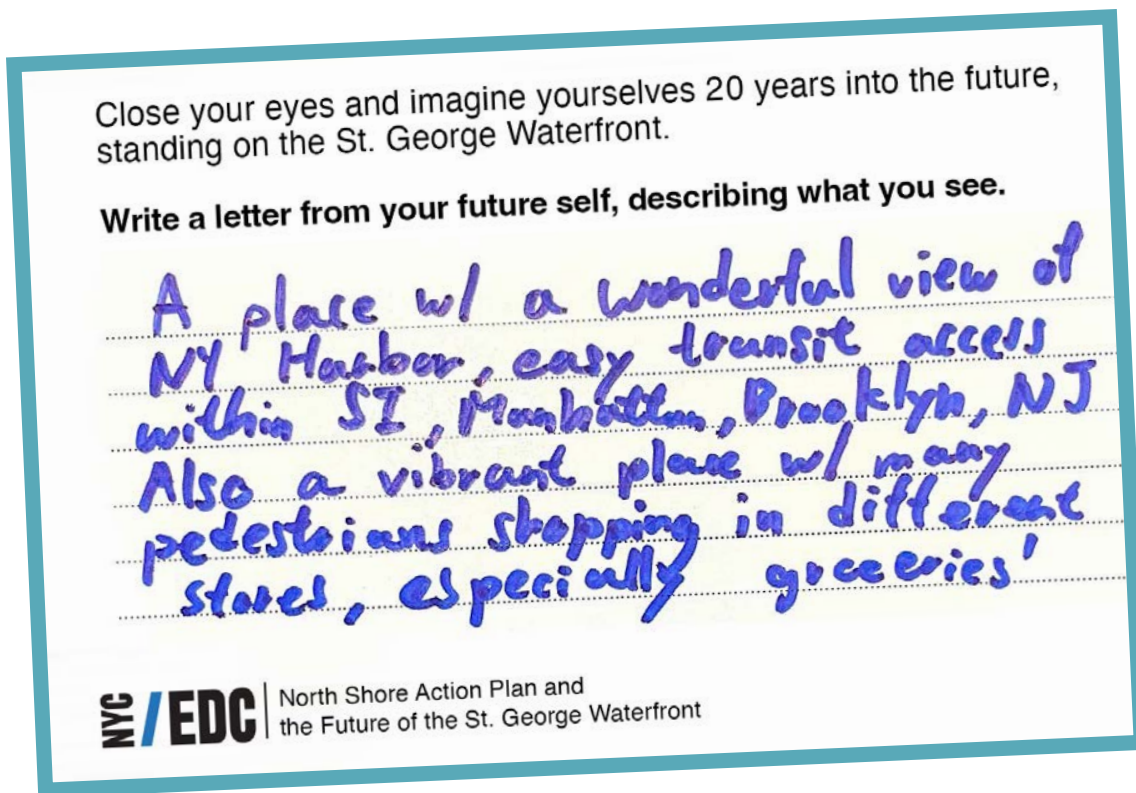 Close your eyes and imagine yourselves 20 years into the future,
standing on the St. George Waterfront.
Write a letter from your future self, describing what you see.
A place w/ a wonderful view of
NY Harbor, easy transit access
within SI, Manhattan, Brooklyn, NJ
Also a vibrant place w/ many
pedestrians shopping in different
stores, especially groceries'
NYC/EDC
North Shore Action Plan and
the Future of the St. George Waterfront